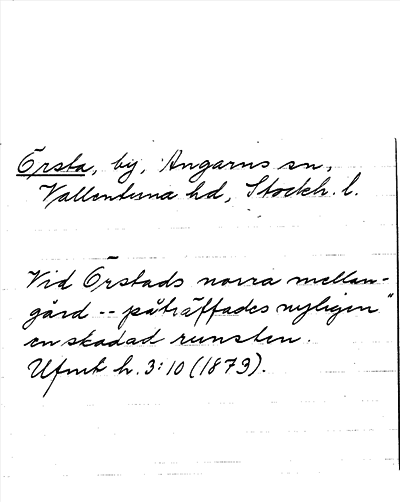 Örsta, by, Angarns sn,
Vallentuna hd, Stockh. l.
Vid Örstads norra mellan-
gård -- påträffades nyligen"
en skadad runsten.
Ufmt h. 3:10 (1873).